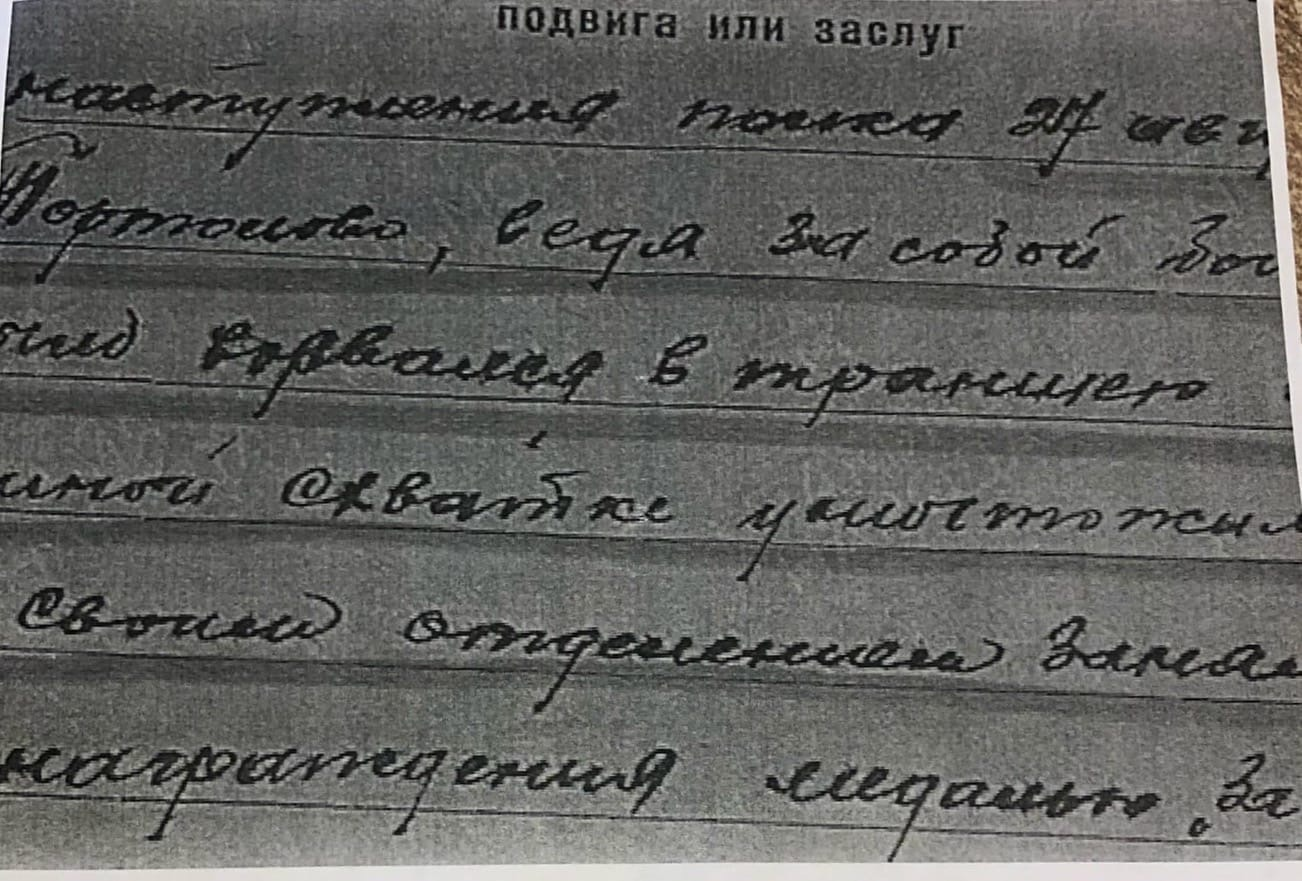 подвига или заслуг
наступления полка 27 авг
Портоново, ведя за собой бой
ворвался в траншею
иной схватке уничтожил
своим отделением занял
награждения медалью „За